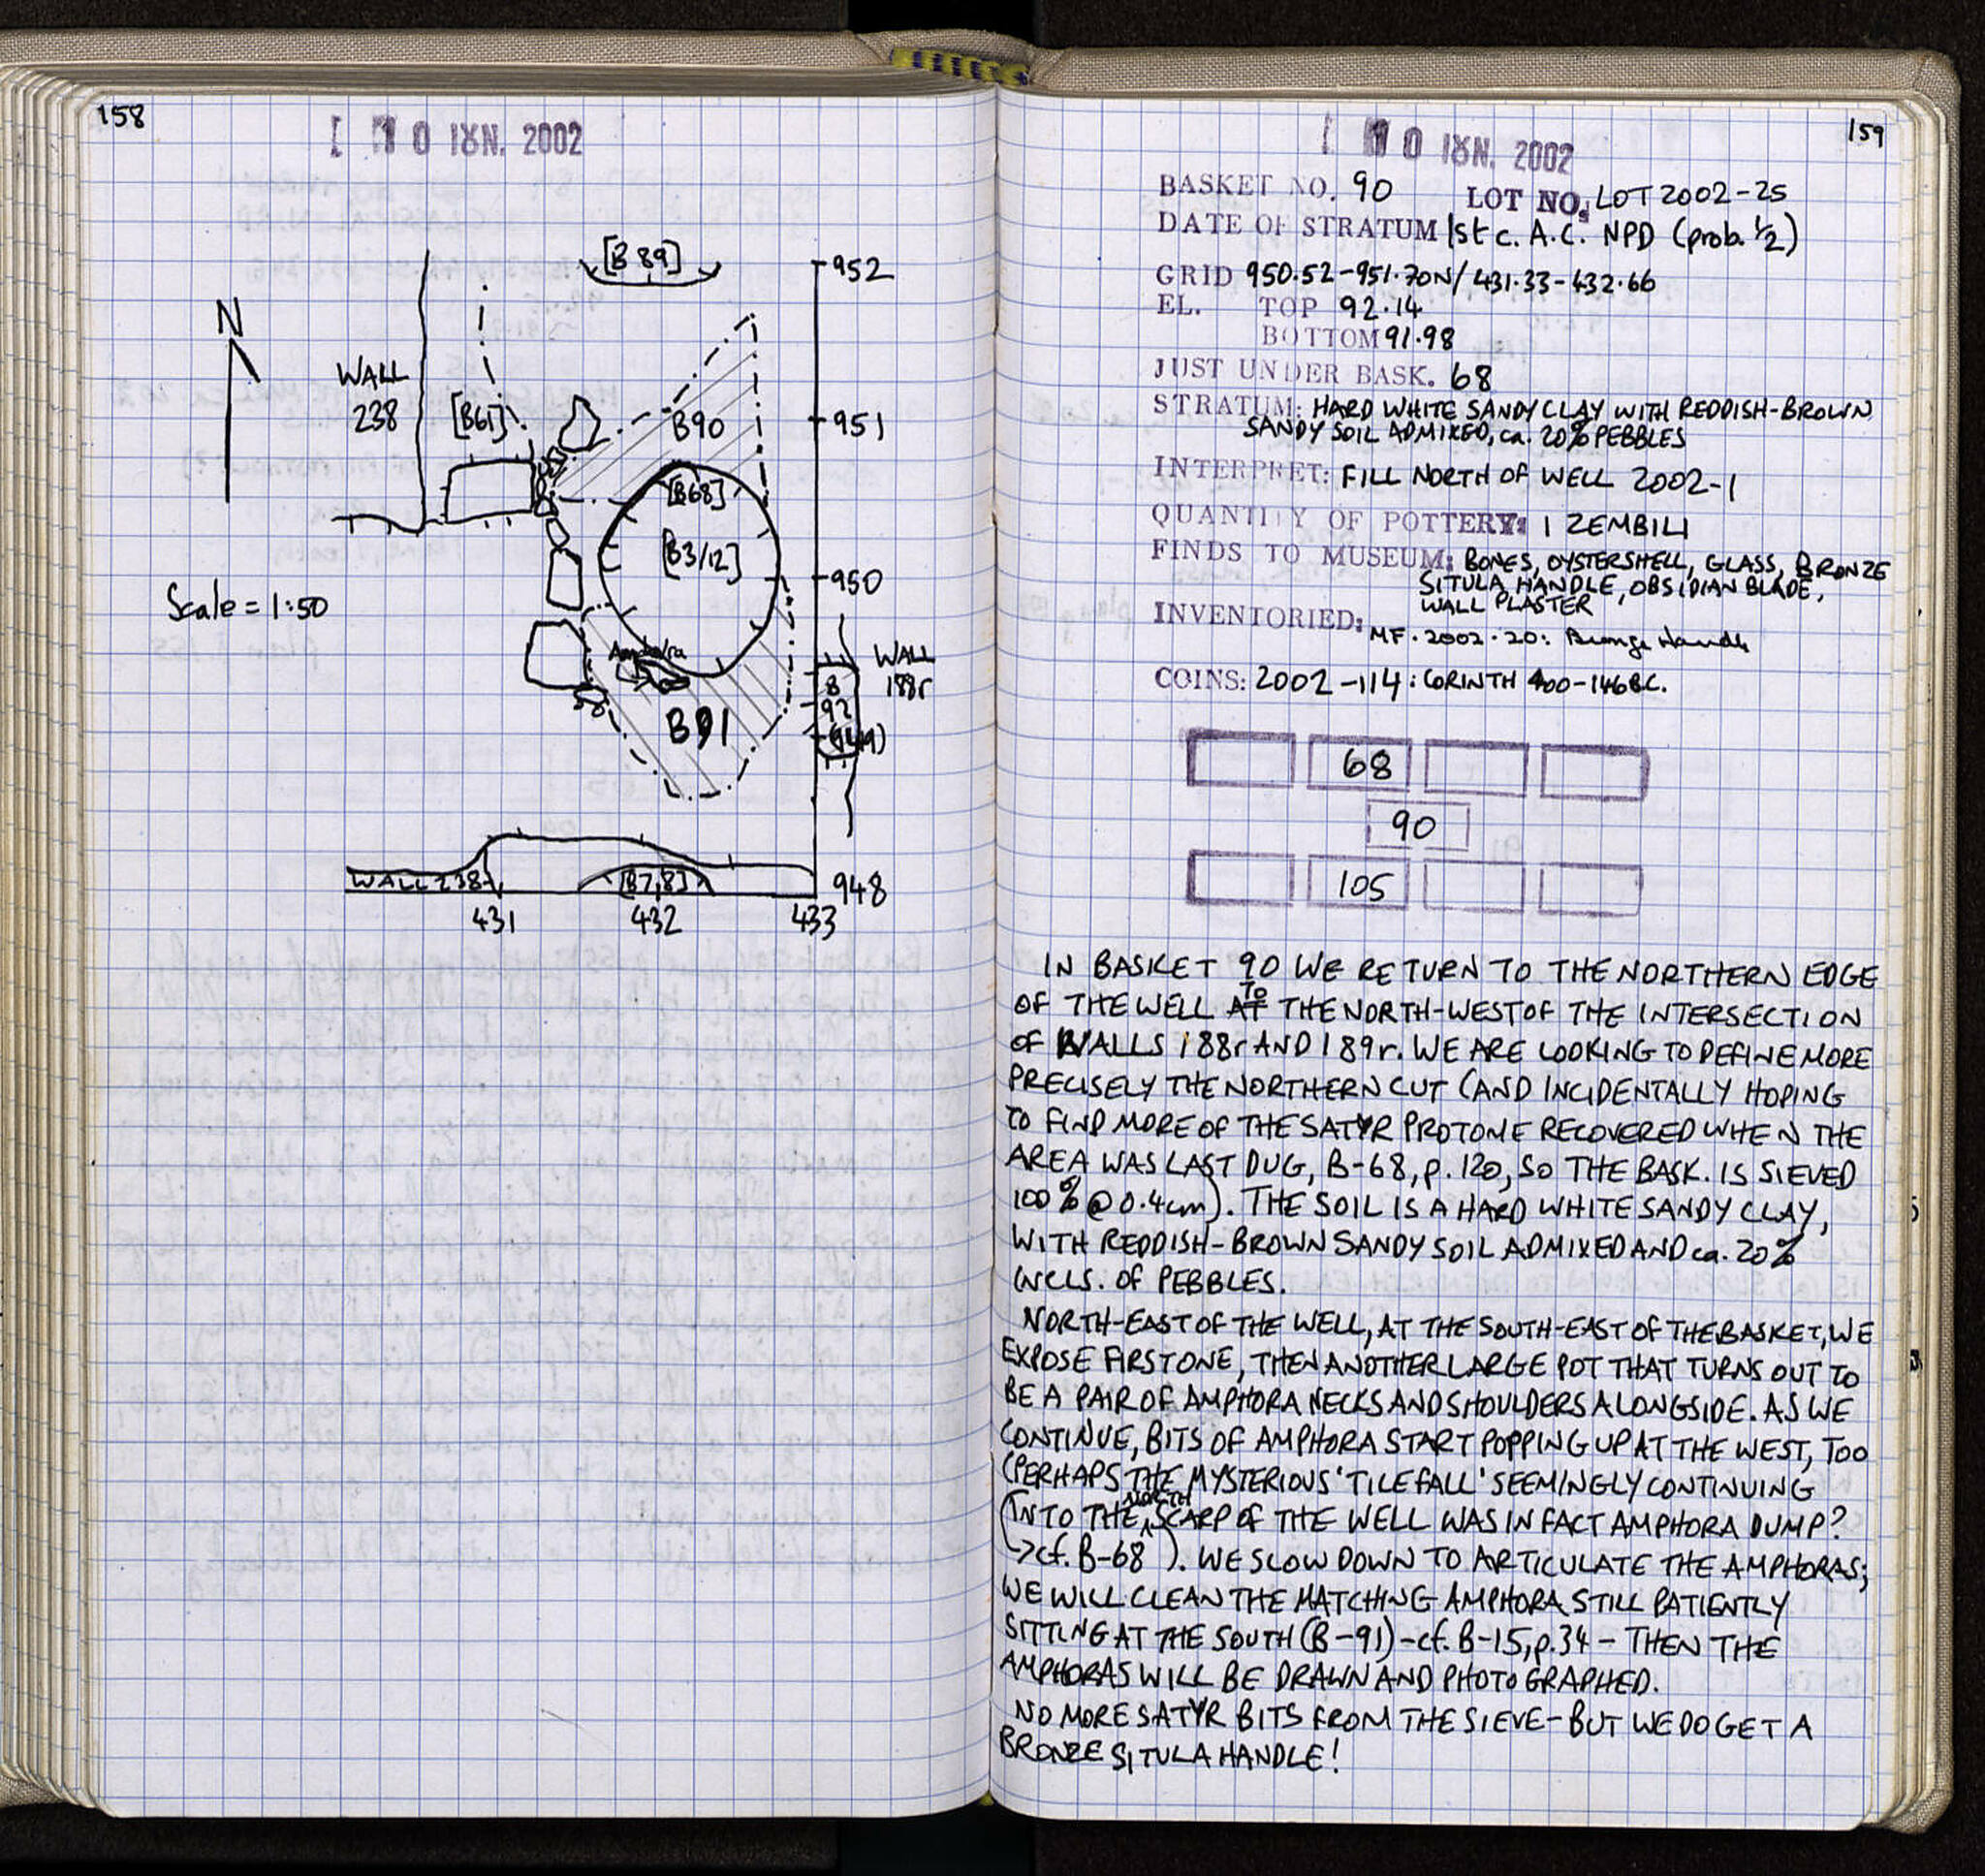 158
10 ΙΟΥΝ. 2002
[B89]
952
N
WALL
238
[B61]
B90
951
[B68]
[B3/12]
950
Scale = 1:50
Amphora
WALL
188r
B
92
(949)
B91
WALL 238
[B7,8]
948
431
432
433
159
10 ΙΟΥΝ. 2002
BASKET NO. 90 LOT NO. LOT 2002-25
DATE OF STRATUM 1st c. A.C. NPD (prob. 1/2)
GRID 950.52-951.70N/431.33-432.66
EL. TOP 92.14
BOTTOM 91.98
JUST UNDER BASK. 68
STRATUM: HARD WHITE SANDY CLAY WITH REDDISH-BROWN
SANDY SOIL ADMIXED, ca. 20% PEBBLES
INTERPRET: FILL NORTH OF WELL 2002-1
QUANTITY OF POTTERY: 1 ZEMBILI
FINDS TO MUSEUM: BONES, OYSTERSHELL, GLASS, BRONZE
SITULA HANDLE, OBSIDIAN BLADE,
WALL PLASTER
INVENTORIED: MF.2002.20: Bronze Handle
COINS: 2002-114: CORINTH 400-146BC.
68
90
105
IN BASKET 90 WE RETURN TO THE NORTHERN EDGE
OF THE WELL TO THE NORTH-WEST OF THE INTERSECTION
OF WALLS 188r AND 189r. WE ARE LOOKING TO DEFINE MORE
PRECISELY THE NORTHERN CUT (AND INCIDENTALLY HOPING
TO FIND MORE OF THE SATYR PROTOME RECOVERED WHEN THE
AREA WAS LAST DUG, B-68, p. 120, SO THE BASK. IS SIEVED
100% @ 0.4cm). THE SOIL IS A HARD WHITE SANDY CLAY,
WITH REDDISH-BROWN SANDY SOIL ADMIXED AND ca. 20%
INCLS. OF PEBBLES.
NORTH-EAST OF THE WELL, AT THE SOUTH-EAST OF THE BASKET, WE
EXPOSE FIRST ONE, THEN ANOTHER LARGE POT THAT TURNS OUT TO
BE A PAIR OF AMPHORA NECKS AND SHOULDERS ALONGSIDE. AS WE
CONTINUE, BITS OF AMPHORA START POPPING UP AT THE WEST, TOO
(PERHAPS THE MYSTERIOUS 'TILE FALL' SEEMINGLY CONTINUING
INTO THE NORTH SCARP OF THE WELL WAS IN FACT AMPHORA DUMP?
→cf. B-68). WE SLOW DOWN TO ARTICULATE THE AMPHORAS;
WE WILL CLEAN THE MATCHING AMPHORA STILL PATIENTLY
SITTING AT THE SOUTH (B-91) - cf. B-15, p.34 - THEN THE
AMPHORAS WILL BE DRAWN AND PHOTOGRAPHED.
NO MORE SATYR BITS FROM THE SIEVE - BUT WE DO GET A
BRONZE SITULA HANDLE!